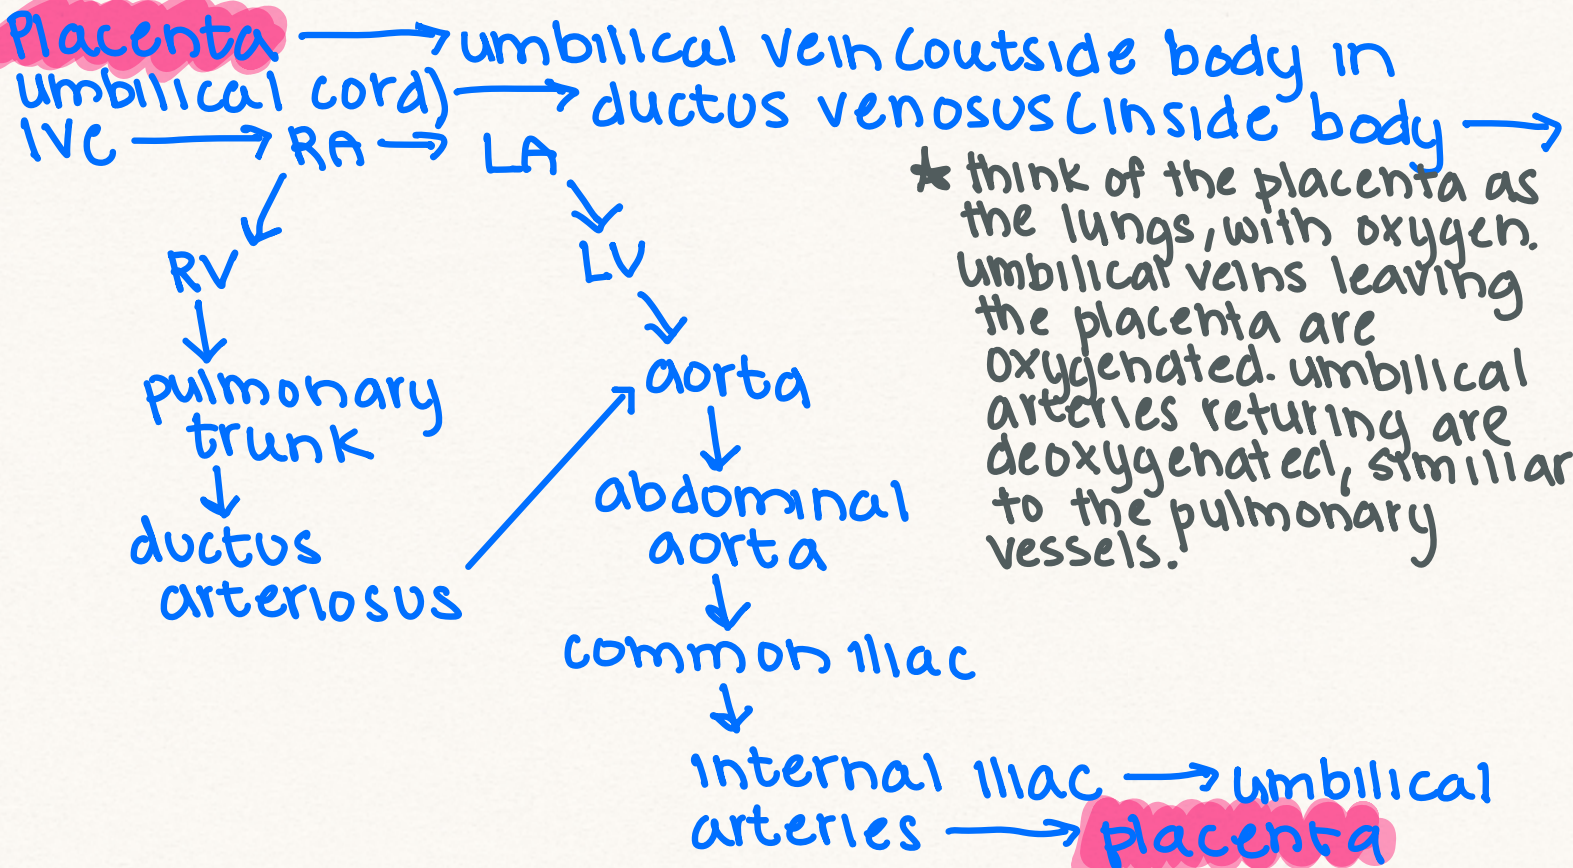 Placenta → umbilical vein (outside body in
umbilical cord) → ductus venosus (inside body →
IVC → RA → LA
RV
pulmonary
trunk
ductus
arteriosus
LV
aorta
abdominal
aorta
common iliac
internal iliac → umbilical
arteries → placenta
* think of the placenta as
the lungs, with oxygen.
umbilical veins leaving
the placenta are
oxygenated. umbilical
arteries returing are
deoxygenated, similiar
to the pulmonary
vessels.